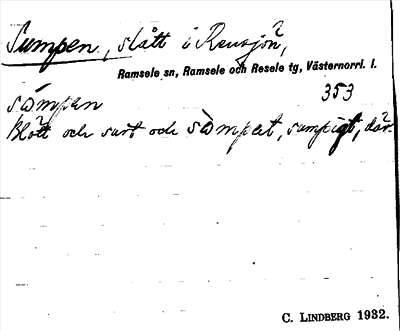 Sumpen, slått i Rensjön,
Ramsele sn, Ramsele och Resele tg, Västernorrl. l.
353
sampen
Blött och surt och sampat, sumpigt, där
C. LINDBERG 1932.